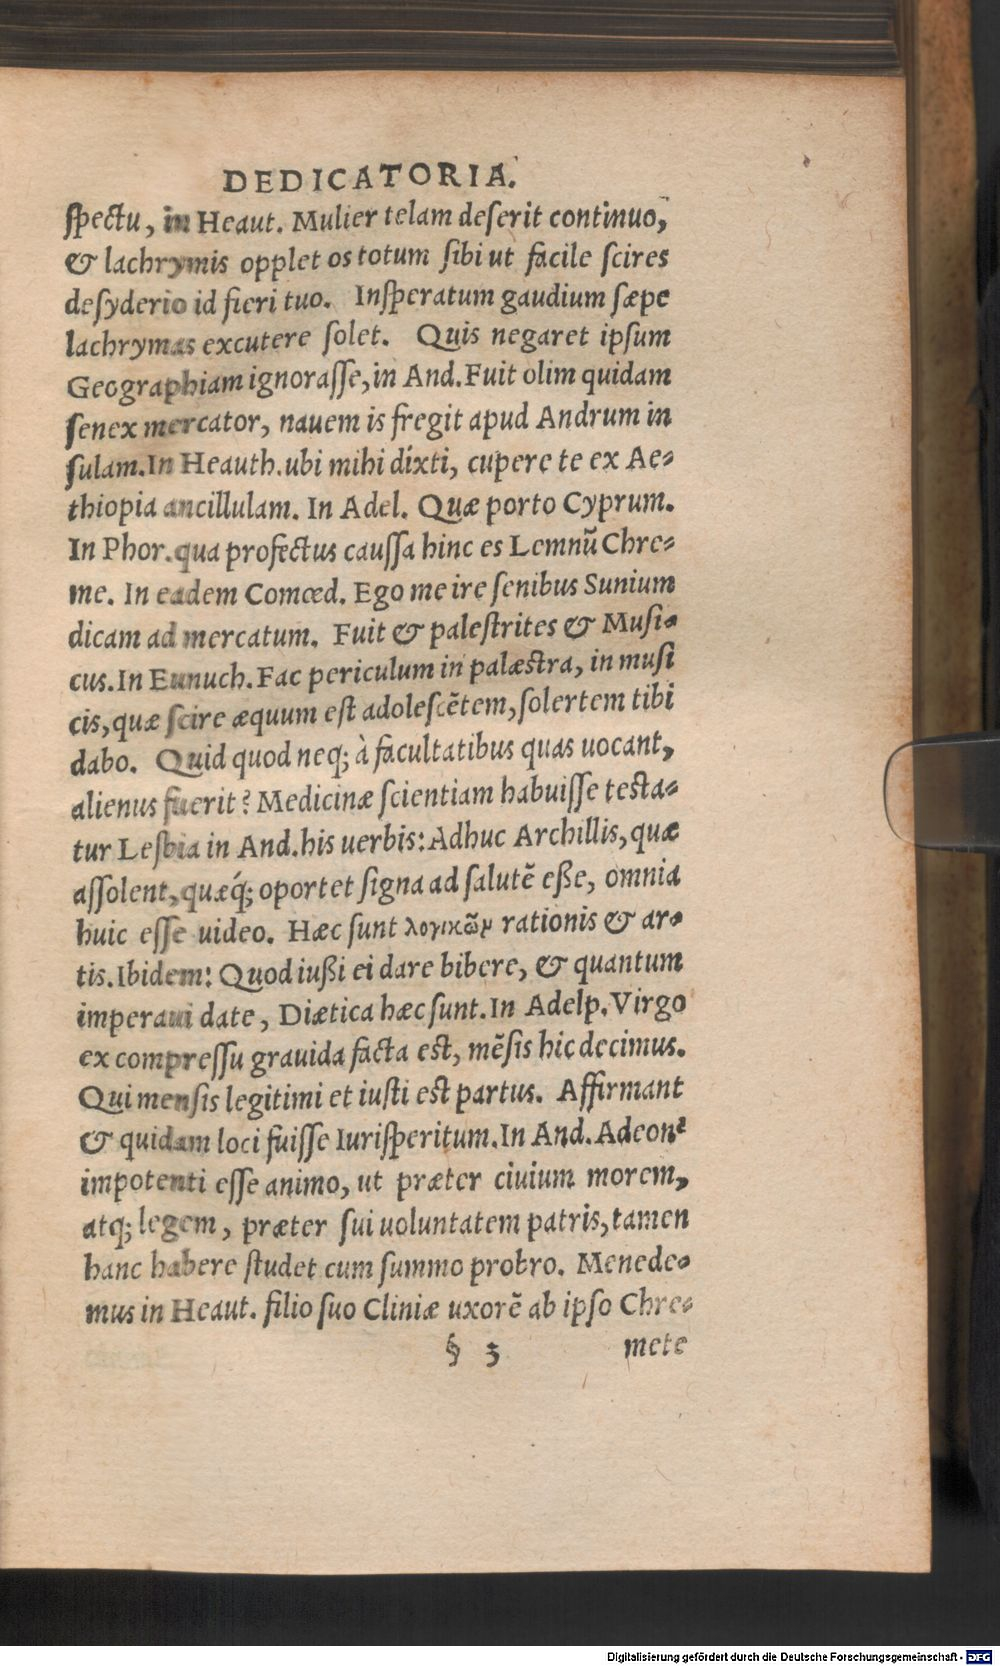 DEDICATORIA.
ſpectu, in Heaut. Mulier telam deſerit continuo,
& lachrymis opplet os totum ſibi ut facile ſcires
deſyderio id fieri tuo. Inſperatum gaudium ſæpe
lachrymas excutere ſolet. Quis negaret ipſum
Geographiam ignoraſſe, in And. Fuit olim quidam
ſenex mercator, nauem is fregit apud Andrum in
ſulam. In Heauth. ubi mihi dixti, cupere te ex Ae-
thiopia ancillulam. In Adel. Quæ porto Cyprum.
In Phor. qua profectus cauſſa hinc es Lemnū Chre-
me. In eadem Comœd. Ego me ire ſenibus Sunium
dicam ad mercatum. Fuit & paleſtrites & Muſi-
cus. In Eunuch. Fac periculum in palæſtra, in muſi
cis, quæ ſcire æquum eſt adoleſcētem, ſolertem tibi
dabo. Quid quod neq; à facultatibus quas uocant,
alienus fuerit? Medicinæ ſcientiam habuiſſe teſta-
tur Leſbia in And. his uerbis: Adhuc Archillis, quæ
aſſolent, quæq́; oportet ſigna ad ſalutē eße, omnia
huic eſſe uideo. Hæc ſunt λογικῶν rationis & ar-
tis. Ibidem: Quod iußi ei dare bibere, & quantum
imperaui date, Diætica hæc ſunt. In Adelp. Virgo
ex compreſſu grauida facta eſt, mēſis hic decimus.
Qui menſis legitimi et iuſti eſt partus. Affirmant
& quidam loci fuiſſe Iuriſperitum. In And. Adeonˀ
impotenti eſſe animo, ut præter ciuium morem,
atq; legem, præter ſui uoluntatem patris, tamen
hanc habere ſtudet cum ſummo probro. Menede-
mus in Heaut. filio ſuo Cliniæ uxorē ab ipſo Chre-
§ 3 mete
Digitalisierung gefördert durch die Deutsche Forschungsgemeinschaft - DFG